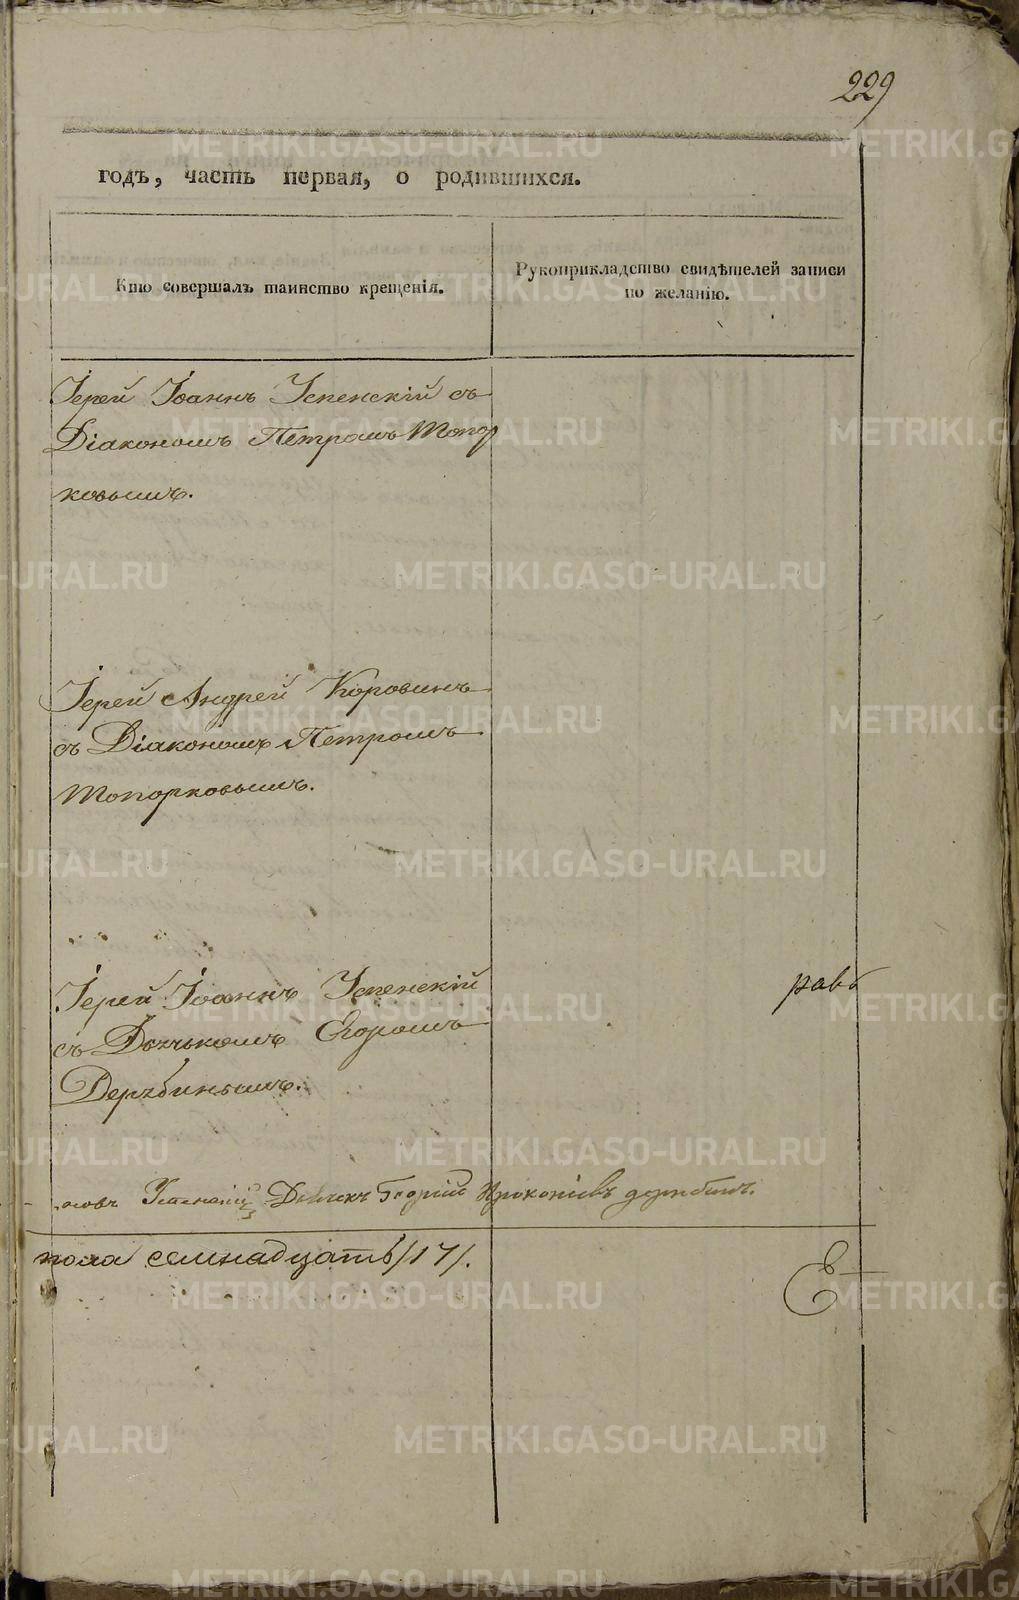 229
годъ, часть первая, о родившихся.
Кто совершалъ таинство крещенія.
Рукоприкладство свидѣтелей записи
по желанію.
Іерей Іоаннъ Успенскій съ
Діакономъ Петромъ Топор
ковымъ.
Іерей Андрей Коровинъ
съ Діакономъ Петромъ
Топорковымъ.
Іерей Іоаннъ Успенскій
съ Дьячькомъ Егоромъ
Дерябинымъ.
Успенскій Дьячекъ Георгій Прокопіевъ дерябинъ.
пола семнадцать /17/.
METRIKI.GASO-URAL.RU